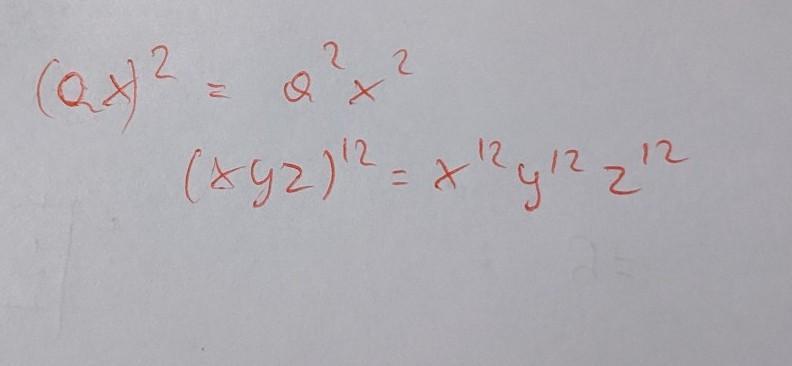 (ax)² = a²x²
(xyz)¹² = x¹²y¹²z¹²